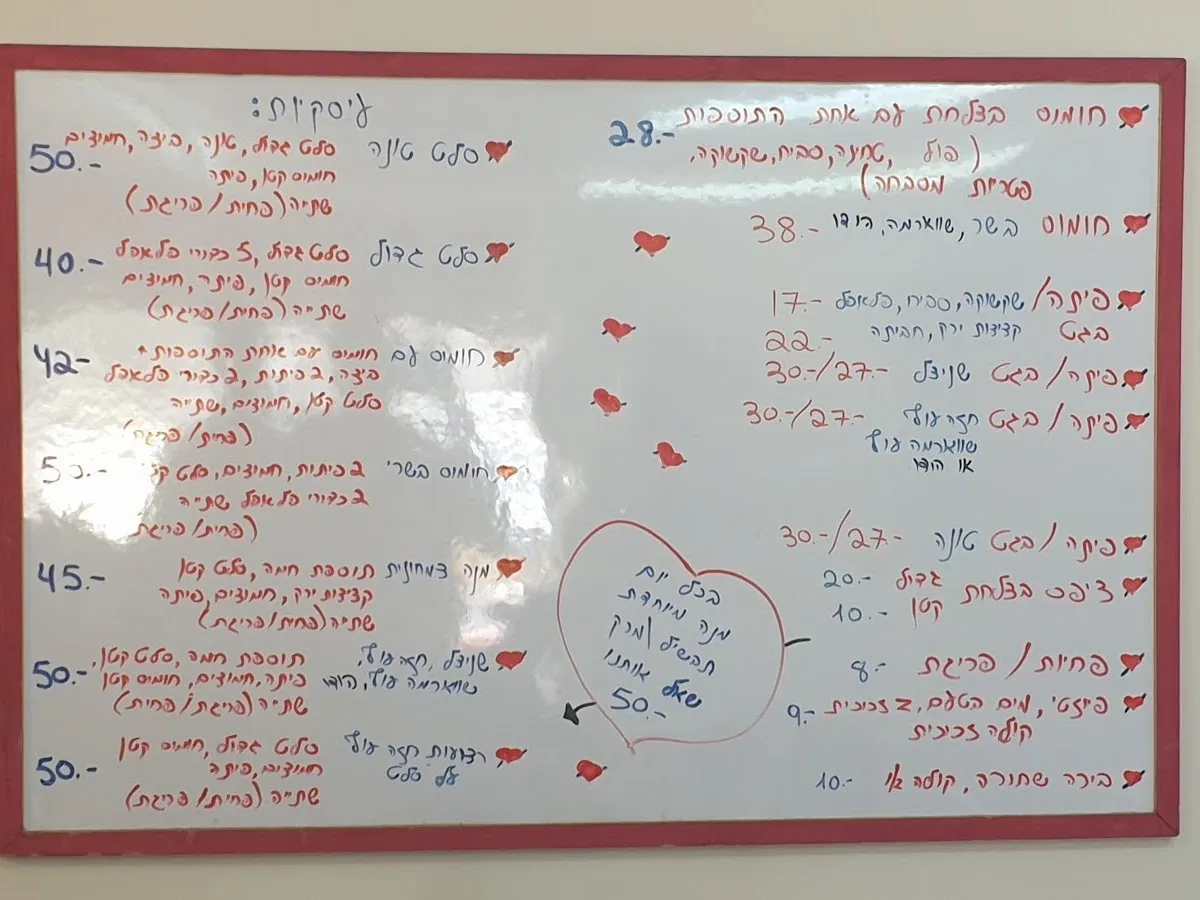 חומוס בצלחת עם אחת התוספות 28.-
(פול, טחינה, סביח, שקשוקה,
פטריות מסבחה)
חומוס בשר, שווארמה, הודו 38.-
פיתה/ שקשוקה, סביח, פלאפל 17.-
בגט קציצות ירק, חביתה 22.-
פיתה/בגט שניצל 30.-/27.-
פיתה/בגט חזה עוף 30.-/27.-
שווארמה עוף
או הודו
פיתה/בגט טונה 30.-/27.-
צ'יפס בצלחת גדול 20.-
קטן 10.-
פחיות/פריגת 8.-
פיוזטי, מים בטעם, בזכוכית 9.-
קולה זכוכית
בירה שחורה, קולה 10.-
עיסקיות:
סלט טונה סלט גדול, טונה, ביצה, חמוצים 50.-
חומוס קטן, פיתה
שתייה (פחית/פריגת)
סלט גדול סלט גדול, 5 כדורי פלאפל 40.-
חומוס קטן, פיתה, חמוצים
שתייה (פחית/פריגת)
חומוס עם חומוס עם אחת התוספות + 42-
ביצה, 2 פיתות, 2 כדורי פלאפל
סלט קטן, חמוצים, שתייה
(פחית/פריגת)
חומוס בשרי 2 פיתות, חמוצים, סלט 50.-
2 כדורי פלאפל שתייה
(פחית/פריגת)
מנה צמחונית תוספת חמה, סלט קטן 45.-
קציצות ירק, חמוצים, פיתה
שתייה (פחית/פריגת)
שניצל, חזה עוף, תוספת חמה, סלט קטן, 50.-
שווארמה עוף, הודו פיתה, חמוצים, חומוס קטן
שתייה (פריגת/פחית)
רצועות חזה עוף סלט גדול, חומוס קטן 50.-
על סלט חמוצים, פיתה
שתייה (פחית/פריגת)
בכל יום
מנה מיוחדת
תבשיל/מרק
שאל אותנו
50.-